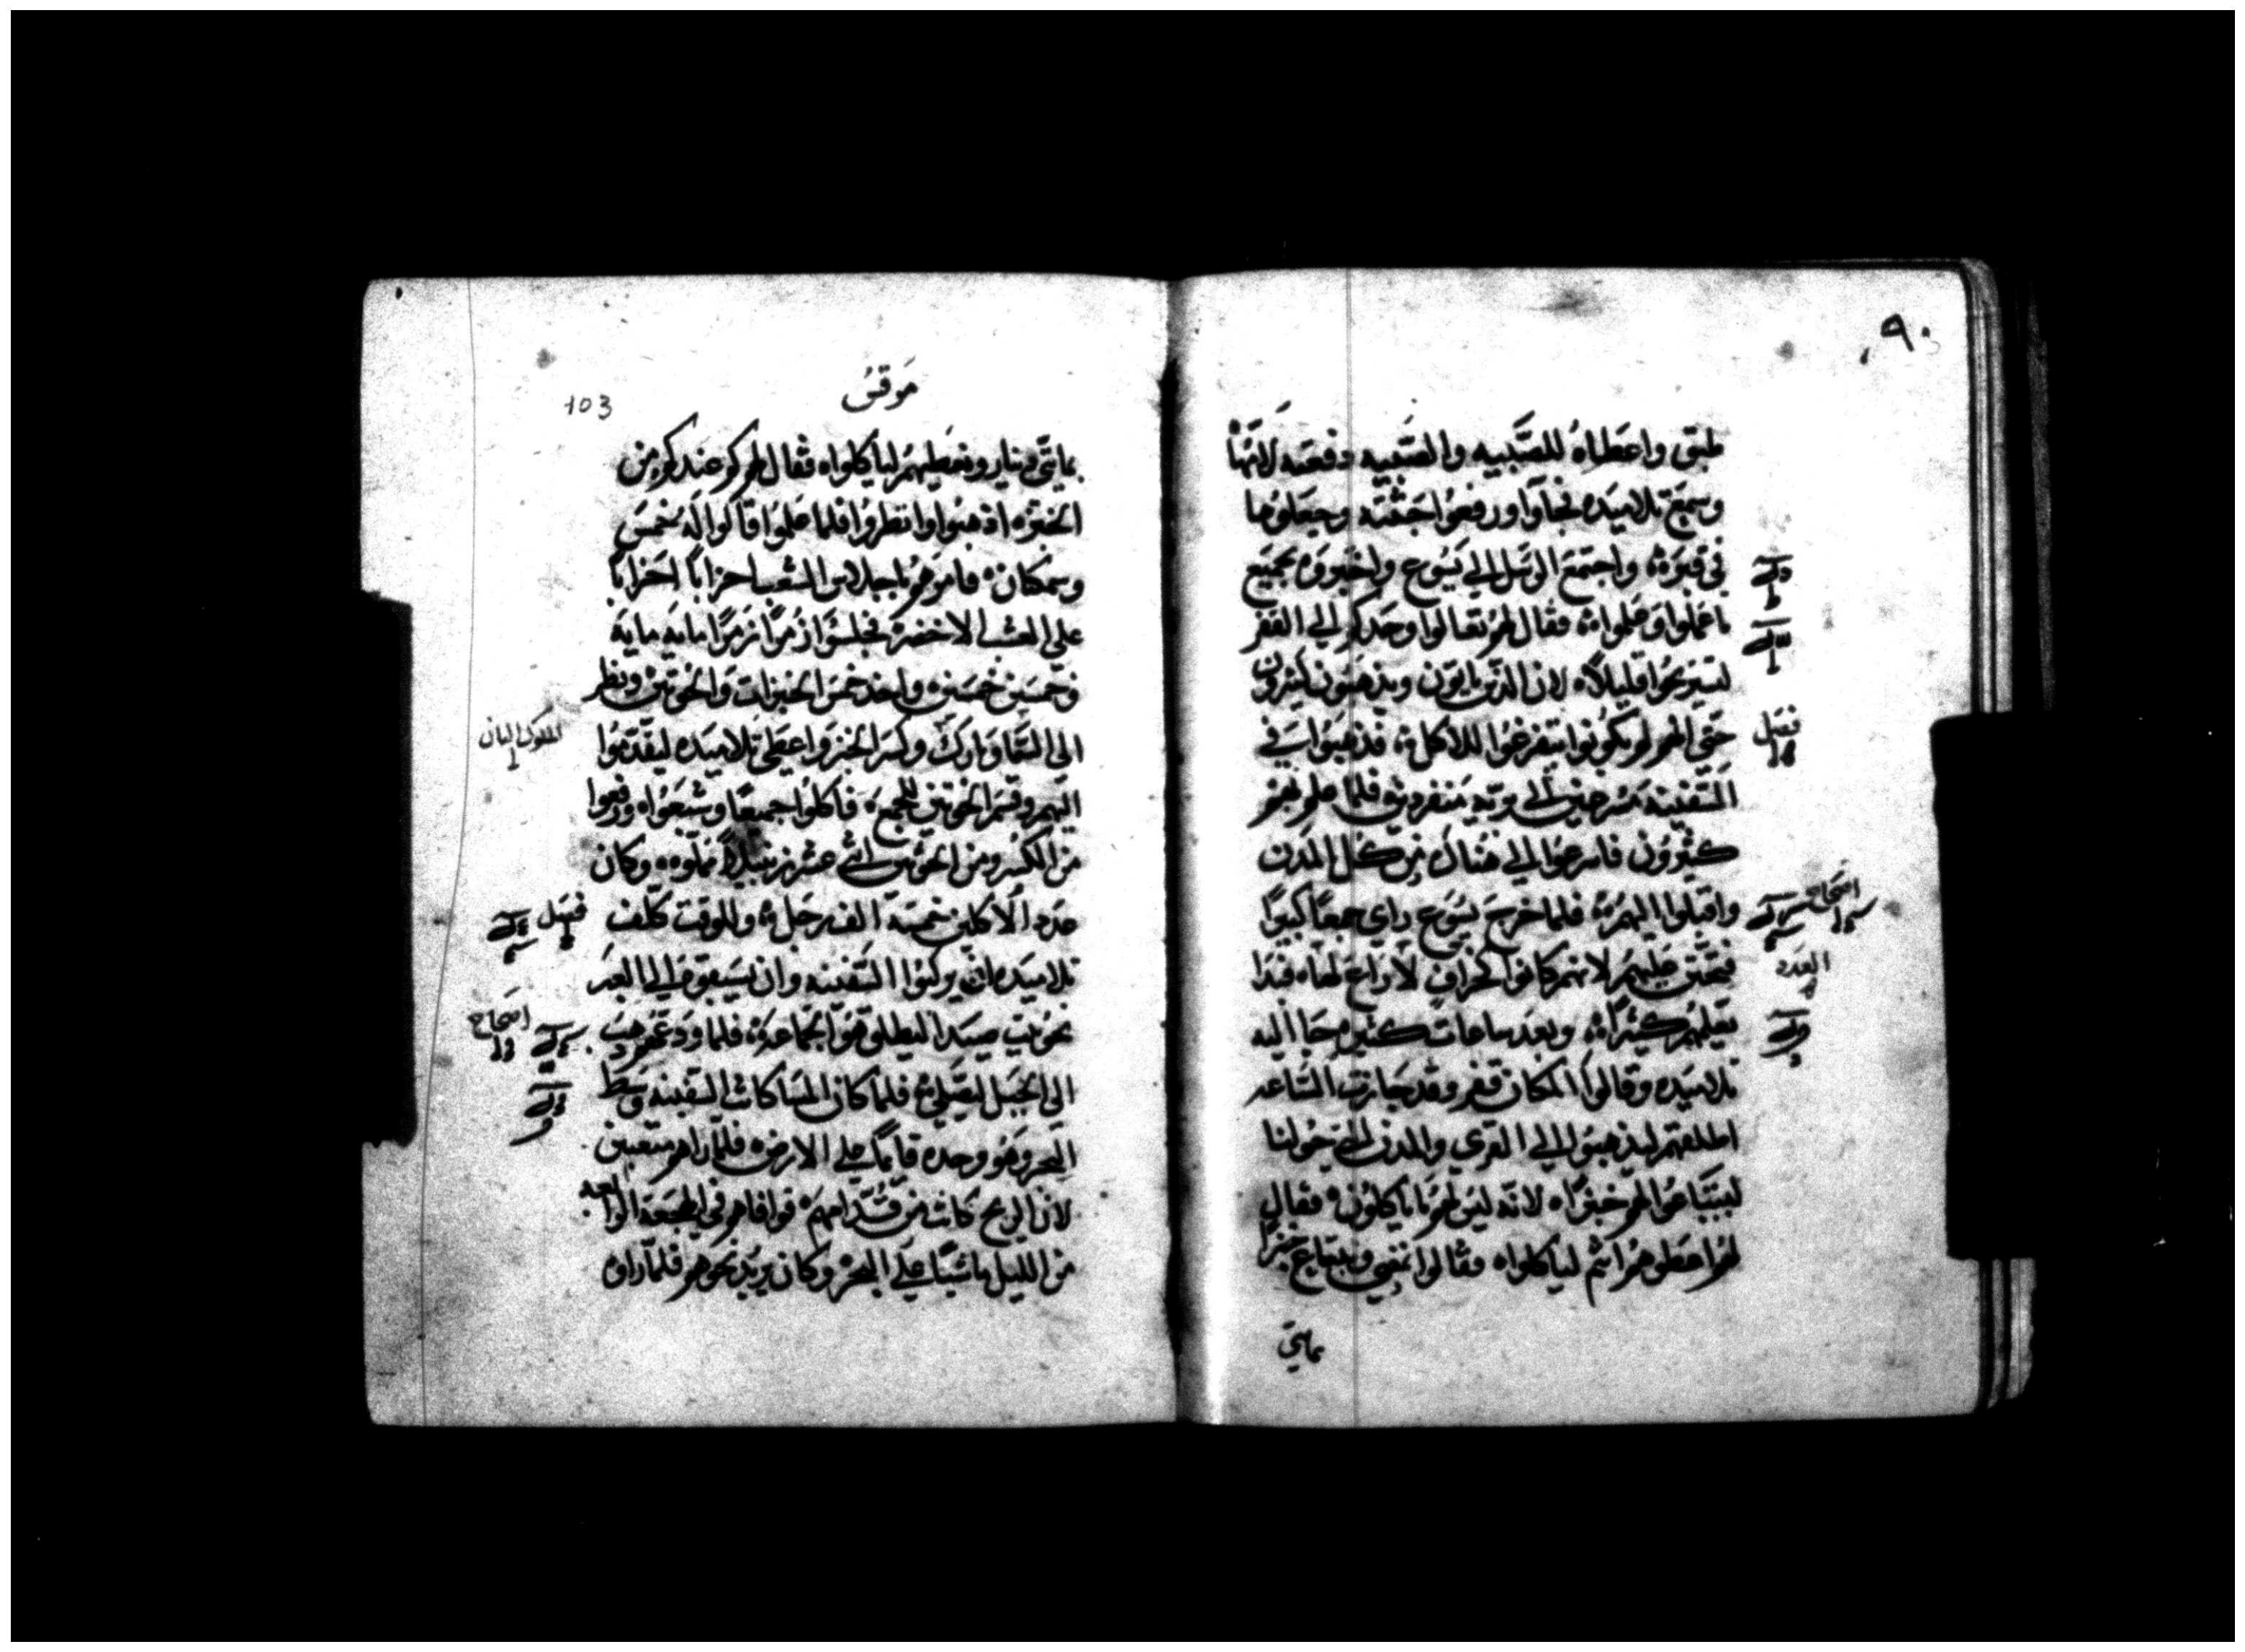 ٩٠
طبق واعطاه للصبيه والصبيه دفعته لامها
وسمع تلاميده فجاوا ورفعوا جثته وجعلوها
في قبره واجتمع الرسل الي يسوع واخبروه بجميع
ما عملوا وعلموا فقال لهم تعالوا وحدكم الي القفر
لتستريحوا قليلاً لان الذين ياتون ويذهبون كثيرون
حتي انهم لم يكونوا يتفرغوا للاكل فذهبوا في
فصل
السفينه مسرعين الي بريه منفردين فلما علم بهم
كثيرون فاسرعوا الي هناك من كل المدن
واقبلوا اليهم فلما خرج يسوع راي جمعاً كبيراً
اصحاح
فتحنن عليهم لانهم كانوا كخراف لا راع لها فبدا
العدد
يعلمهم كثيراً وبعد ساعات كثيره جا اليه
تلاميده وقالوا المكان قفر وقد جازت الساعه
اطلقهم ليذهبوا الي القري والمدن التي حولنا
ليبتاعوا لهم خبزاً لانه ليس لهم ما ياكلون فقال
لهم اعطوهم انتم لياكلوا فقالوا نمضي ونبتاع خبزاً
بمايتي
مرقس
103
بمايتي دينار ونعطيهم لياكلوا فقال لهم كم عندكم من
الخبز اذهبوا وانظروا فلما علموا قالوا له خمس
وسمكتان فامرهم باجلاس الشعب احزاباً احزاباً
علي العشب الاخضر فجلسوا زمراً زمراً مايه مايه
وخمسين خمسين واخذ خمس الخبزات والحوتين ونظر
الي السما وبارك وكسر الخبز واعطي تلاميده ليقدموا
اليهم وقسم الحوتين للجميع فاكلوا جميعاً وشبعوا ورفعوا
من الكسر ومن الحوتين اثني عشر زنبيلاً مملوه وكان
عدد الاكلين خمسة الف رجل وللوقت كلف
فصل
تلاميده ان يركبوا السفينه وان يسبقوه الي العبر
نحو بيت صيدا ليطلق هو الجماعه فلما ودعهم ذهب
اصحاح
الي الجبل ليصلي فلما كان المسا كانت السفينه وسط
البحر وهو وحده قايماً علي الارض فلما راهم متعبين
لان الريح كانت من قدامهم فوافاهم في الهجعه الرابعه
من الليل ماشياً علي البحر وكان يريد نحوهم فلما راوه